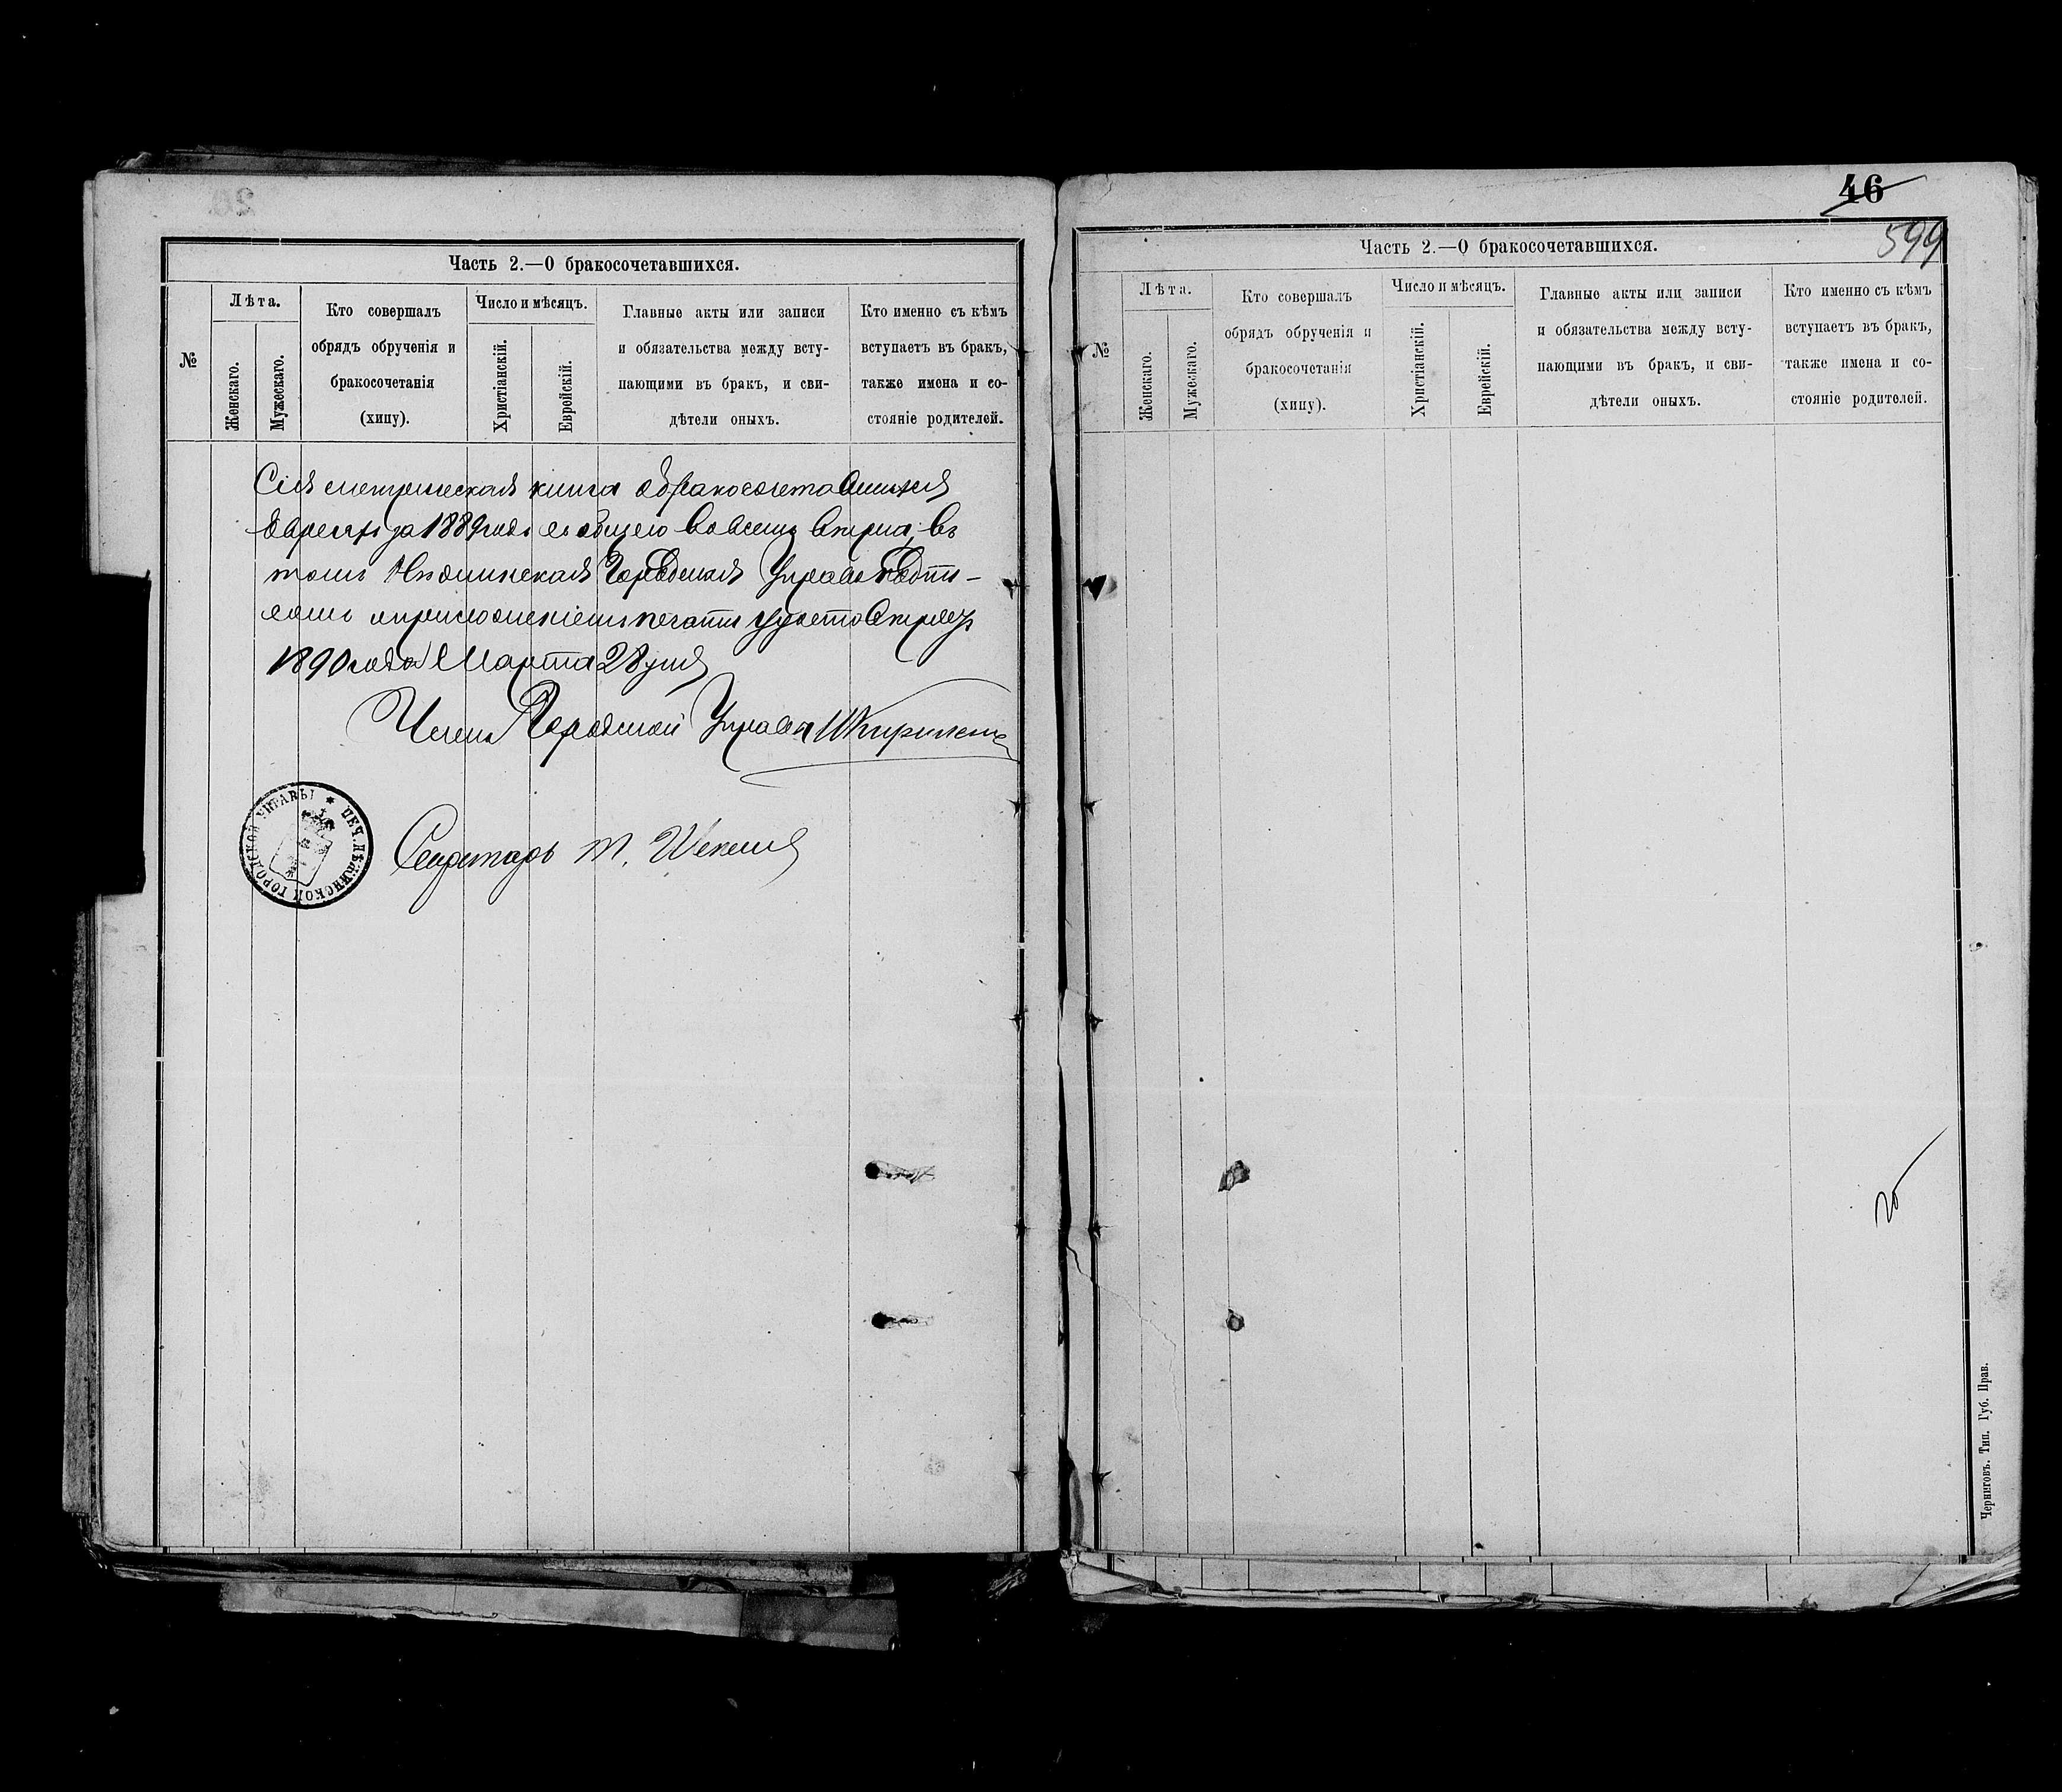 Часть 2.—О бракосочетавшихся.
№
Лѣта.
Женскаго.
Мужескаго.
Кто совершалъ
обрядъ обрученія и
бракосочетанія
(хипу).
Число и мѣсяцъ.
Христіанскій.
Еврейскій.
Главные акты или записи
и обязательства между всту-
пающими въ бракъ, и сви-
дѣтели оныхъ.
Кто именно съ кѣмъ
вступаетъ въ бракъ,
также имена и со-
стояніе родителей.
Сія метрическая книга о бракосочетавшихся
Евреяхъ за 1889 годъ во всемъ вѣрна, въ
томъ Нѣжинская Городская Управа
приложеніемъ печати удостовѣряетъ
1890 года Марта 28 дня
Членъ Городской Управы
Секретарь
ПЕЧ. НѢЖИНСКОЙ ГОРОДСКОЙ УПРАВЫ
46
599
Часть 2.—О бракосочетавшихся.
№
Лѣта.
Женскаго.
Мужескаго.
Кто совершалъ
обрядъ обрученія и
бракосочетанія
(хипу).
Число и мѣсяцъ.
Христіанскій.
Еврейскій.
Главные акты или записи
и обязательства между всту-
пающими въ бракъ, и сви-
дѣтели оныхъ.
Кто именно съ кѣмъ
вступаетъ въ бракъ,
также имена и со-
стояніе родителей.
Черниговъ. Тип. Губ. Прав.